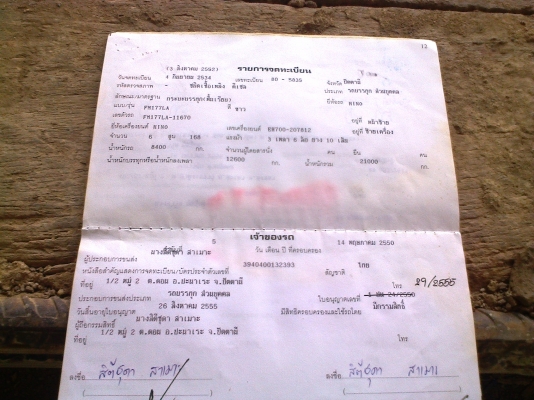 12
(3 สิงหาคม 2552) รายการจดทะเบียน
วันจดทะเบียน 4 กันยายน 2534 เลขทะเบียน 80 - 5835 จังหวัด ปัตตานี
ชนิดเชื้อเพลิง ดีเซล ประเภท รถบรรทุก ส่วนบุคคล
ลักษณะ/มาตรฐาน กระบะบรรทุก ยี่ห้อรถ HINO
แบบ/รุ่น FM177LA สี ขาว
เลขตัวรถ FM177LA-11670 อยู่ที่ หน้าซ้าย
ยี่ห้อเครื่องยนต์ HINO เลขเครื่องยนต์ EH700-207812 อยู่ที่ ซ้ายเครื่อง
จำนวน 6 สูบ 168 แรงม้า 3 เพลา 6 ล้อ ยาง 10 เส้น
น้ำหนักรถ 8400 กก. จำนวนผู้โดยสาร นั่ง คน ยืน คน
น้ำหนักบรรทุกหรือน้ำหนักลงเพลา 12600 กก. น้ำหนักรวม 21000 กก.
เจ้าของรถ
5 วัน เดือน ปี ที่ครอบครอง 14 พฤษภาคม 2550
ผู้ประกอบการขนส่ง สาเมาะ
หนังสือสำคัญแสดงการจดทะเบียน/บัตรประจำตัวเลขที่ 3940400132393 สัญชาติ ไทย
ที่อยู่ 1/2 หมู่ 2 ต.ดอน อ.ปะนาเระ จ.ปัตตานี โทร
ประกอบการขนส่งประเภท รถบรรทุก ส่วนบุคคล ใบอนุญาตเลขที่ 29/2555
วันสิ้นอายุใบอนุญาต 26 สิงหาคม 2555 มีสิทธิครอบครองและใช้รถโดย มีกรรมสิทธิ์
ผู้ถือกรรมสิทธิ์ สาเมาะ
ที่อยู่ 1/2 หมู่ 2 ต.ดอน อ.ปะนาเระ จ.ปัตตานี โทร
ลงชื่อ ลงชื่อ